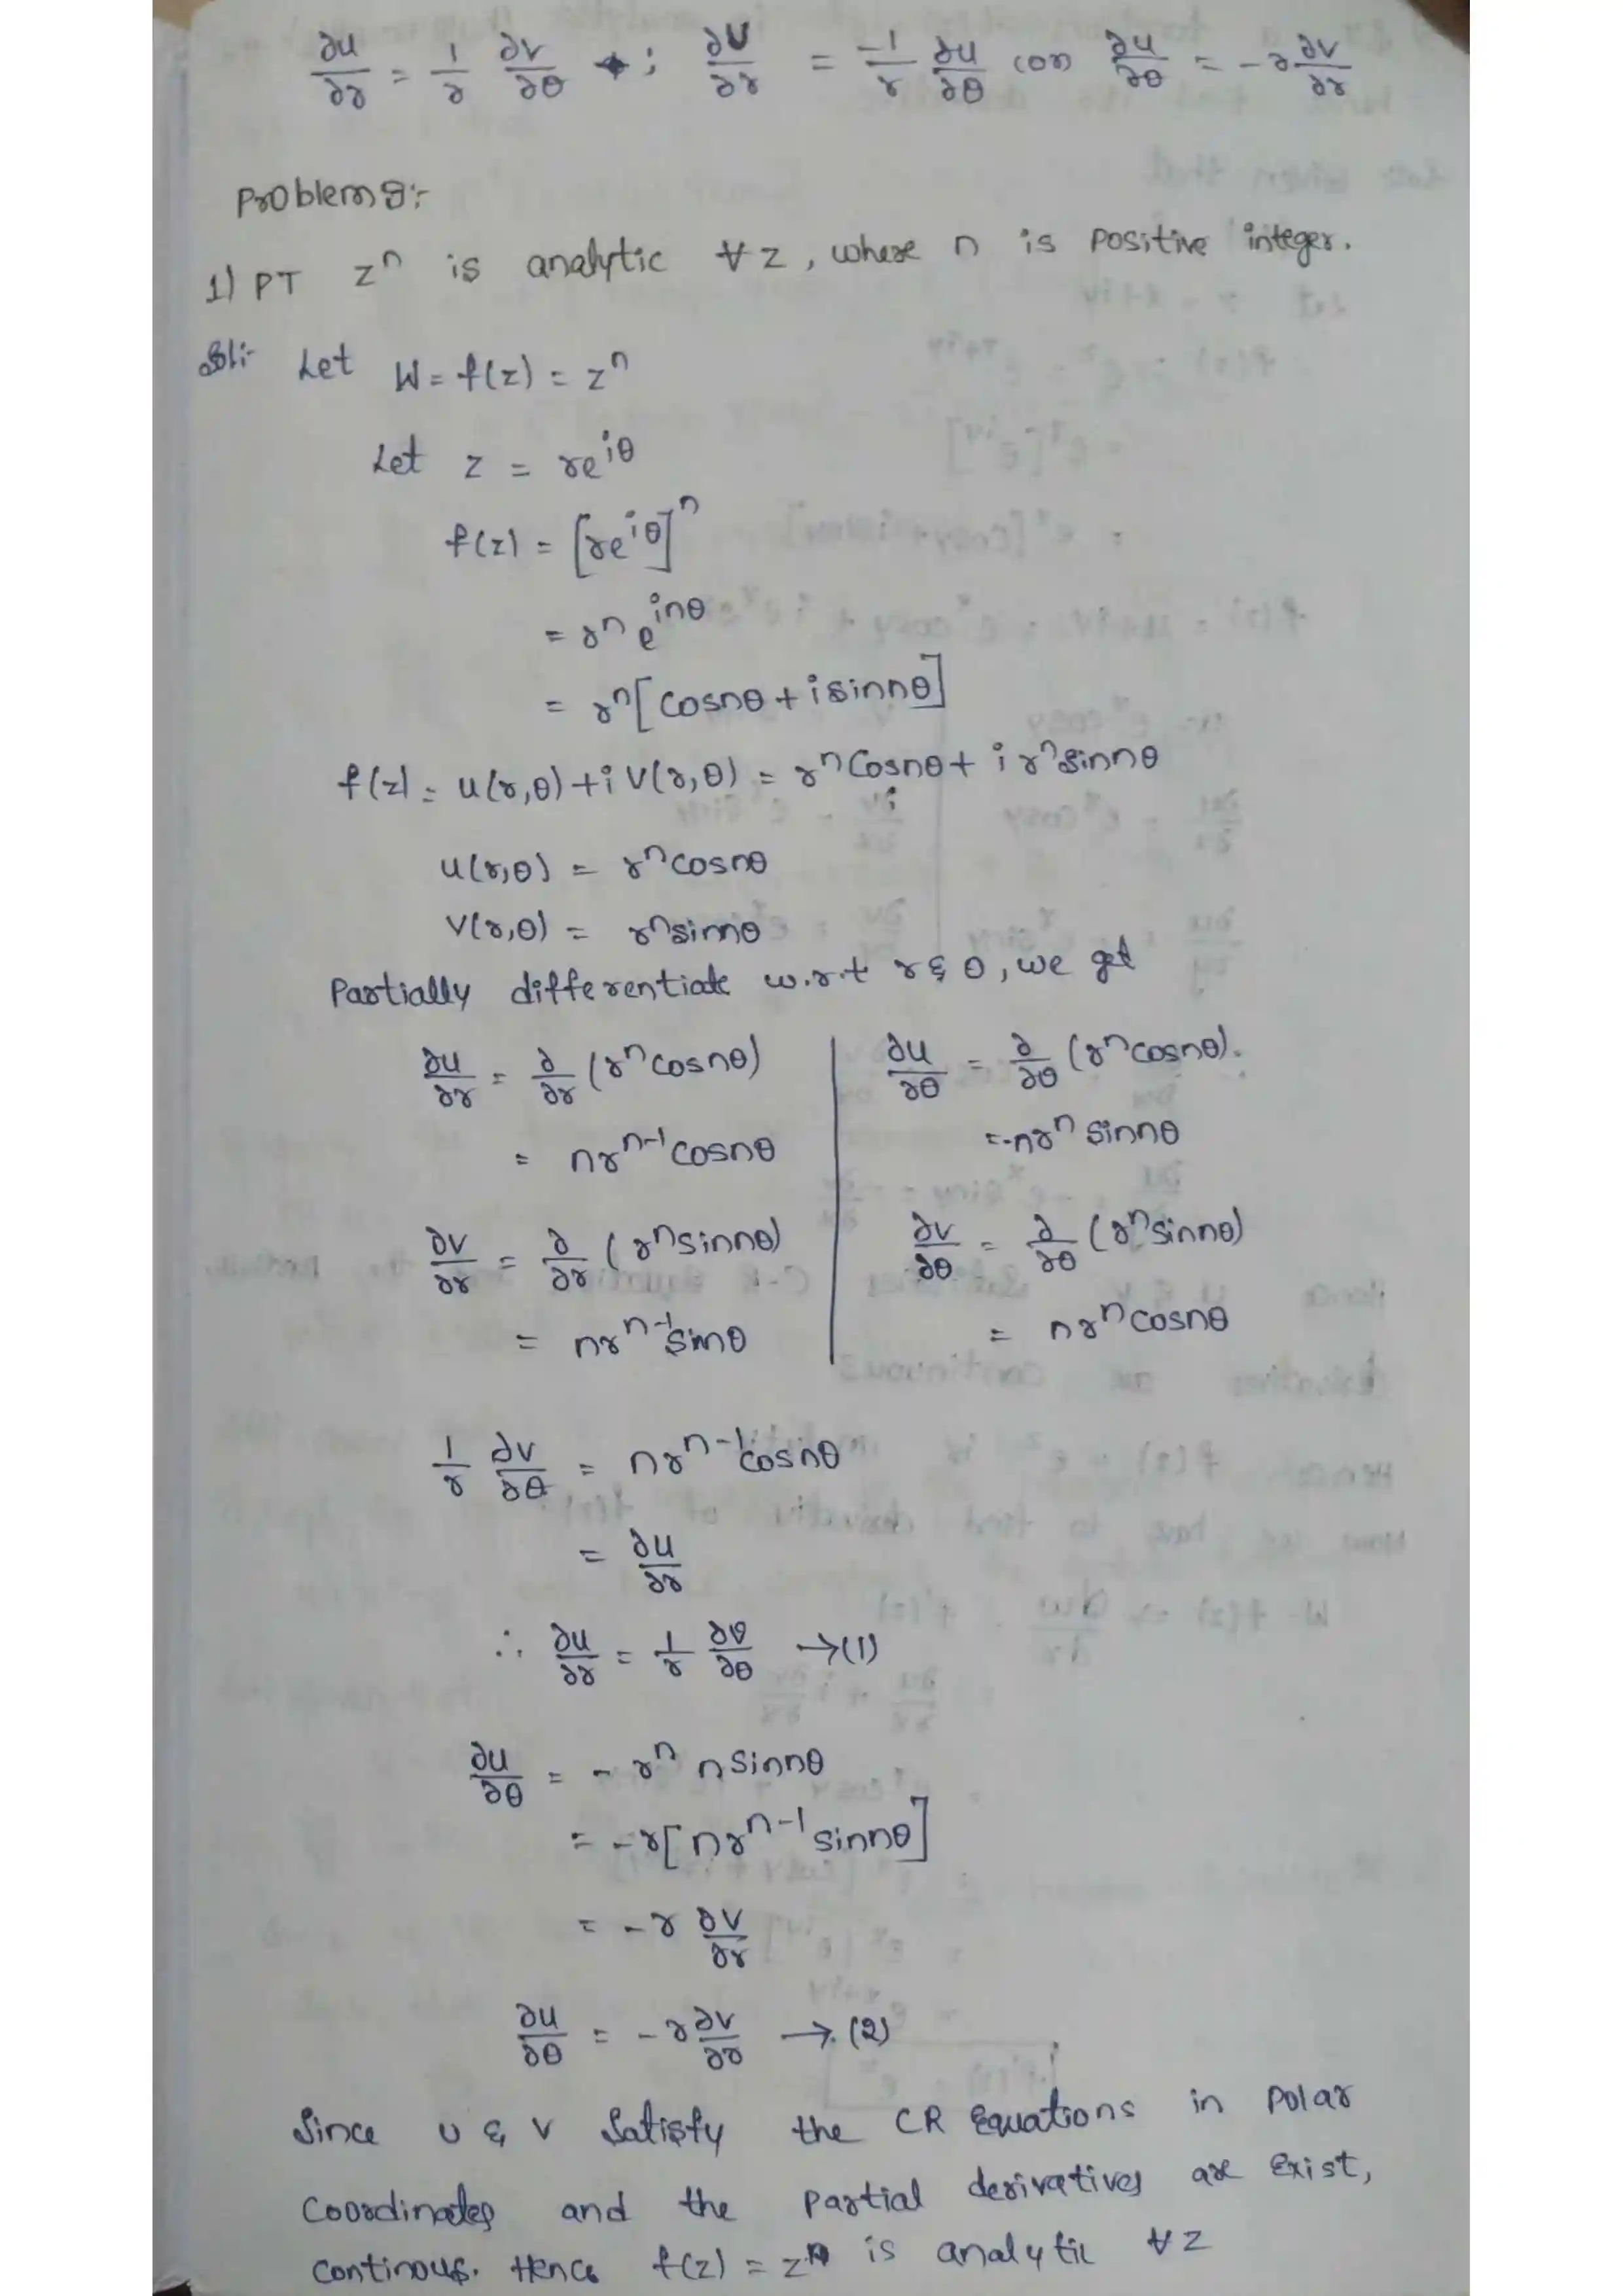 ∂u/∂r = 1/r ∂v/∂θ ; ∂v/∂r = -1/r ∂u/∂θ (or) ∂u/∂θ = -r ∂v/∂r
Problems:-
1) PT zⁿ is analytic ∀ z, where n is positive integer.
Sol:- Let W = f(z) = zⁿ
Let z = re^{iθ}
f(z) = [re^{iθ}]ⁿ
= rⁿ e^{inθ}
= rⁿ[cosnθ + i sinnθ]
f(z) = u(r,θ) + i v(r,θ) = rⁿ Cosnθ + i rⁿ sinnθ
u(r,θ) = rⁿ cosnθ
v(r,θ) = rⁿ sinnθ
Partially differentiate w.r.t r & θ, we get
∂u/∂r = ∂/∂r (rⁿ cosnθ) | ∂u/∂θ = ∂/∂θ (rⁿ cosnθ).
= nr^{n-1} cosnθ | = -nrⁿ sinnθ
∂v/∂r = ∂/∂r (rⁿ sinnθ) | ∂v/∂θ = ∂/∂θ (rⁿ sinnθ)
= nr^{n-1} sinnθ | = nrⁿ cosnθ
1/r ∂v/∂θ = nr^{n-1} cosnθ
= ∂u/∂r
∴ ∂u/∂r = 1/r ∂v/∂θ →(1)
∂u/∂θ = - rⁿ n sinnθ
= -r[nr^{n-1} sinnθ]
= -r ∂v/∂r
∂u/∂θ = -r ∂v/∂r → (2)
Since u & v Satisfy the CR Equations in Polar
Coordinates and the Partial derivatives are Exist,
continous. Hence f(z) = zⁿ is analytic ∀ z